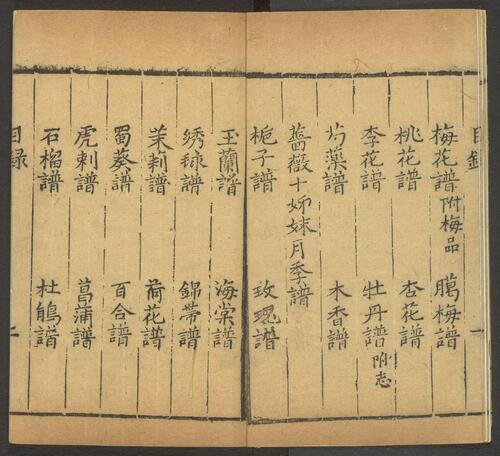 目錄 一
梅花譜附梅品 臈梅譜
桃花譜 杏花譜
李花譜 牡丹譜附志
芍藥譜 木香譜
薔薇十姊妹月季譜
梔子譜 玫瑰譜
玉蘭譜 海棠譜
绣毬譜 錦帶譜
茉莉譜 荷花譜
蜀葵譜 百合譜
虎刺譜 菖蒲譜
石榴譜 杜鵑譜
目録 二